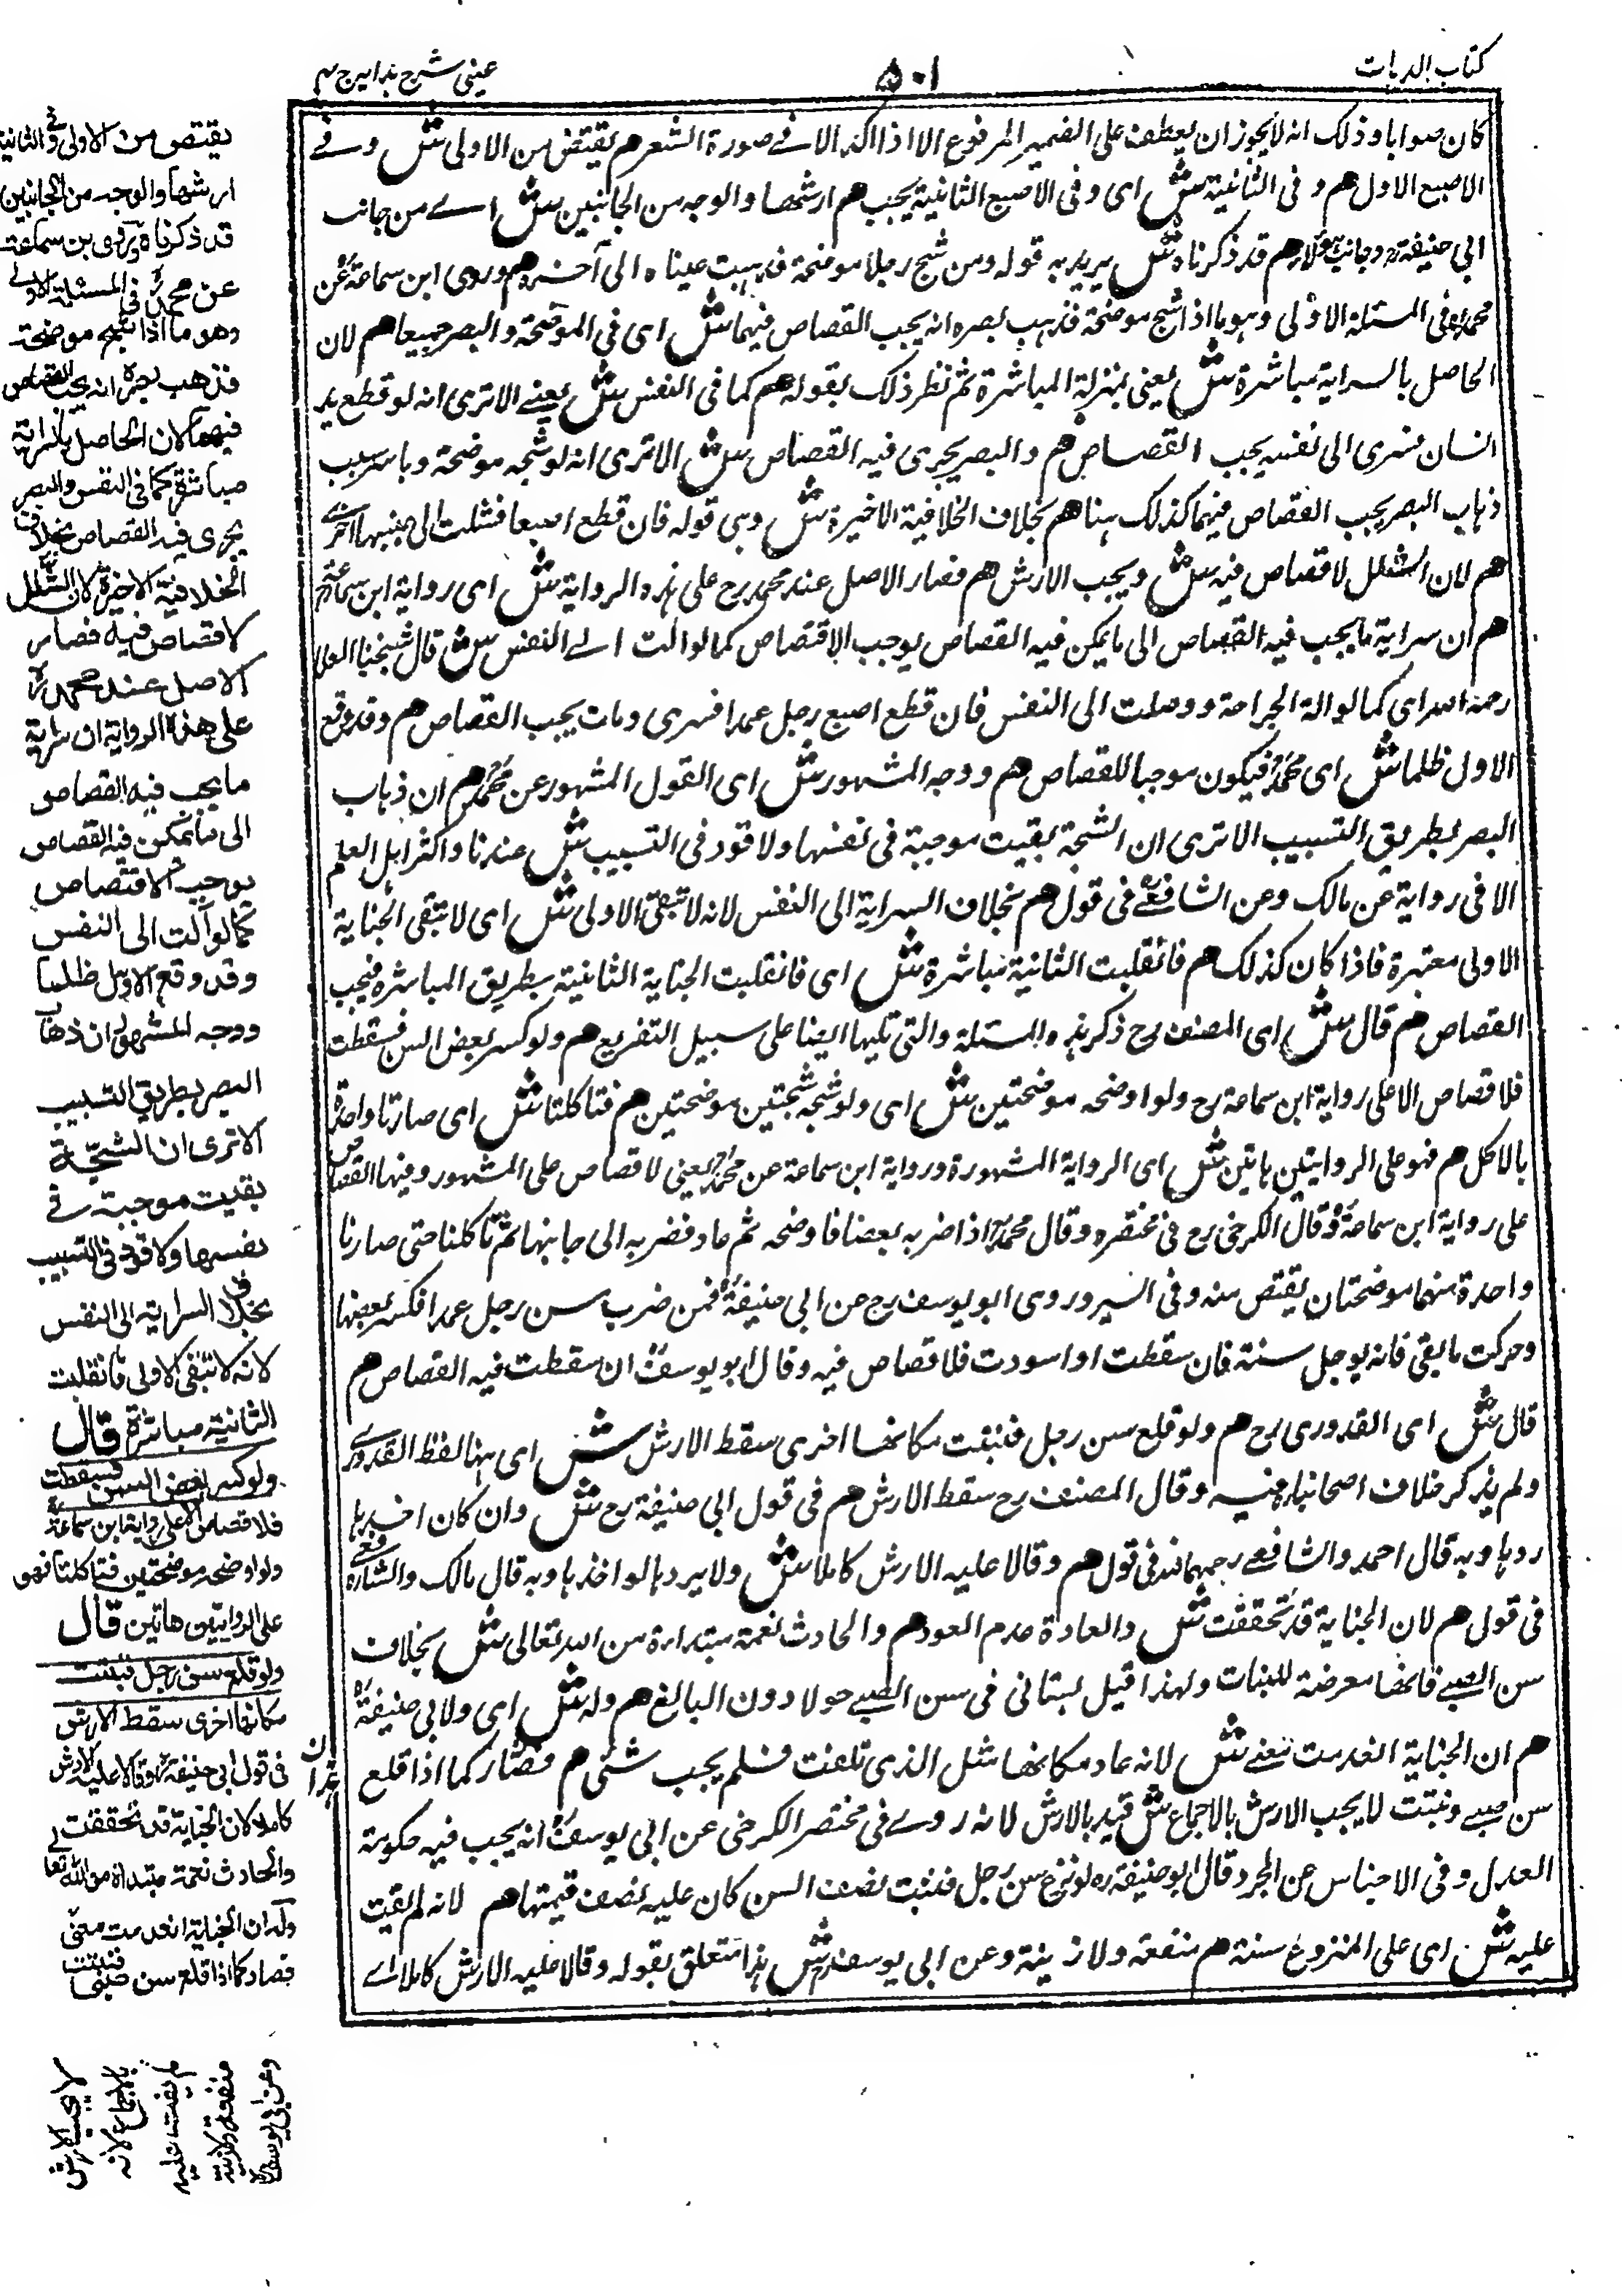 كتاب الديات
٥٠١
عينى شرح هدايه ج ٤
كان صوابا وذلك انه لا يجوز ان يعطف على الضمير المرفوع الا اذا اكد الا فى صورة الشعر هم يقتص من الاولى ش وفى
الاصبع الاول هم وفى الثانية ش اى وفى الاصبع الثانية يجب هم ارشها والوجه من الجانبين ش اى من جانب
ابى حنيفة رح وجانب هؤلاء هم قد ذكرناه ش يريد به قوله ومن شج رجلا موضحة فذهبت عيناه الى آخره هم وروى ابن سماعة عن
محمد رح فى المسئلة الاولى وهو ما اذا شج موضحة فذهب بصره انه يجب القصاص فيهما ش اى فى الموضحة والبصر جميعا هم لان
الحاصل بالسراية مباشرة ش يعنى بمنزلة المباشرة ثم نظر ذلك بقوله هم كما فى النفس ش يعنى الا ترى انه لو قطع يد
انسان فسرى الى نفسه يجب القصاص هم والبصر يجرى فيه القصاص ش الا ترى انه لو شجه موضحة وباشر سبب
ذهاب البصر يجب القصاص فيهما كذلك هنا هم بخلاف الخلافية الاخيرة ش وهى قوله فان قطع اصبعا فشلت الى جنبها اخرى
هم لان الشلل لا قصاص فيه ش ويجب الارش هم فصار الاصل عند محمد رح على هذه الرواية ش اى رواية ابن سماعة عنه
هم ان سراية ما يجب فيه القصاص الى ما يمكن فيه القصاص يوجب الاقتصاص كما لو آلت الى النفس ش قال شيخنا العلاء
رحمه الله اى كما لو آلة الجراحة ووصلت الى النفس فان قطع اصبع رجل عمدا فسرى ومات يجب القصاص هم وقد وقع
الاول ظلما ش اى محمد رح فيكون موجبا للقصاص هم ووجه المشهور ش اى القول المشهور عن محمد رح هم ان ذهاب
البصر بطريق التسبيب الا ترى ان الشجة بقيت موجبة فى نفسها ولا قود فى التسبيب ش عندنا واكثر اهل العلم
الا فى رواية عن مالك وعن الشافعى رح فى قول هم بخلاف السراية الى النفس لانه لا تبقى الاولى ش اى لا تبقى الجناية
الاولى معتبرة فاذا كان كذلك هم فانقلبت الثانية مباشرة ش اى فانقلبت الجناية الثانية بطريق المباشرة فيجب
القصاص هم قال ش اى المصنف رح ذكر هذه المسئلة والتى تليها ايضا على سبيل التفريع هم ولو كسر بعض السن فسقطت
فلا قصاص الا على رواية ابن سماعة رح ولو اوضحه موضحتين ش اى ولو شجه شجتين موضحتين هم فتاكلتا ش اى صارتا واحدة
بالاكل هم فهو على الروايتين هاتين ش اى الرواية المشهورة ورواية ابن سماعة عن محمد رح يعنى لا قصاص على المشهور وفيها القصاص
على رواية ابن سماعة رح وقال الكرخى رح فى مختصره وقال محمد رح اذا ضربه بعصا فاوضحه ثم عاد فضربه الى جانبها ثم تاكلتا حتى صارتا
واحدة منهما موضحتان يقتص منه وفى السير وروى ابو يوسف رح عن ابى حنيفة رح فمن ضرب سن رجل عمدا فكسر بعضها
وحركت ما بقى فانه يوجل سنة فان سقطت او اسودت فلا قصاص فيه وقال ابو يوسف رح ان سقطت فيه القصاص هم
قال ش اى القدورى رح هم ولو قلع سن رجل فنبتت مكانها اخرى سقط الارش ش اى هنا لفظ القدورى
ولم يذكر خلاف اصحابنا فيه وقال المصنف رح سقط الارش هم فى قول ابى حنيفة رح ش وان كان اخذها
ردها وبه قال احمد والشافعى رحمهما الله فى قول هم وقالا عليه الارش كاملا ش ولا يردها لو اخذها وبه قال مالك والشافعى
فى قول هم لان الجناية قد تحققت ش والعادة عدم العود هم والحادث نعمة مبتدأة من الله تعالى ش بخلاف
سن الصبى فانها معرضة للنبات ولهذا قيل يستانى فى سن الصبى حولا دون البالغ هم وله ش اى ولابى حنيفة رح
هم ان الجناية انعدمت معنى ش لانه عاد مكانها مثل الذى تلفت فلم يجب شئ هم فصار كما اذا قلع
سن صبى ونبتت لا يجب الارش بالاجماع ش قيد بالارش لانه روى فى مختصر الكرخى عن ابى يوسف رح انه يجب فيه حكومة
العدل وفى الاجناس عن المجرد قال ابو حنيفة رح لو نزع سن رجل فنبت نصف السن كان عليه نصف قيمتها هم لانه لم يفت
عليه ش اى على المنزوع سنة هم منفعة ولا زينة وعن ابى يوسف رح ش هذا متعلق بقوله وقالا عليه الارش كاملا اى
يقتص من الاولى وفى الثانية
ارشها والوجه من الجانبين
قد ذكرناه وروى بن سماعة
عن محمد رح فى المسئلة الاولى
وهو ما اذا شج موضحة
فذهب بصره انه يجب القصاص
فيهما لان الحاصل بالسراية
مباشرة كما فى النفس والبصر
يجرى فيه القصاص بخلاف
الخلافية الاخيرة لان الشلل
لا قصاص فيه فصار
الاصل عند محمد رح
على هذه الرواية ان سراية
ما يجب فيه القصاص
الى ما يمكن فيه القصاص
يوجب الاقتصاص
كما لو آلت الى النفس
وقد وقع الاول ظلما
ووجه المشهور ان ذهاب
البصر بطريق التسبيب
الا ترى ان الشجة
بقيت موجبة فى
نفسها ولا قود فى التسبيب
بخلاف السراية الى النفس
لانه لا تبقى الاولى فانقلبت
الثانية مباشرة قال
ولو كسر بعض السن فسقطت
فلا قصاص الا على رواية ابن سماعة
ولو اوضحه موضحتين فتاكلتا فهو
على الروايتين هاتين قال
ولو قلع سن رجل فنبتت
مكانها اخرى سقط الارش
فى قول ابى حنيفة رح وقالا عليه الارش
كاملا لان الجناية قد تحققت
والحادث نعمة مبتدأة من الله تعالى
وله ان الجناية انعدمت معنى
فصار كما اذا قلع سن صبى فنبتت
لا يجب الارش
بالاجماع لانه
لم يفت عليه
منفعة ولا زينة
وعن ابى يوسف رح